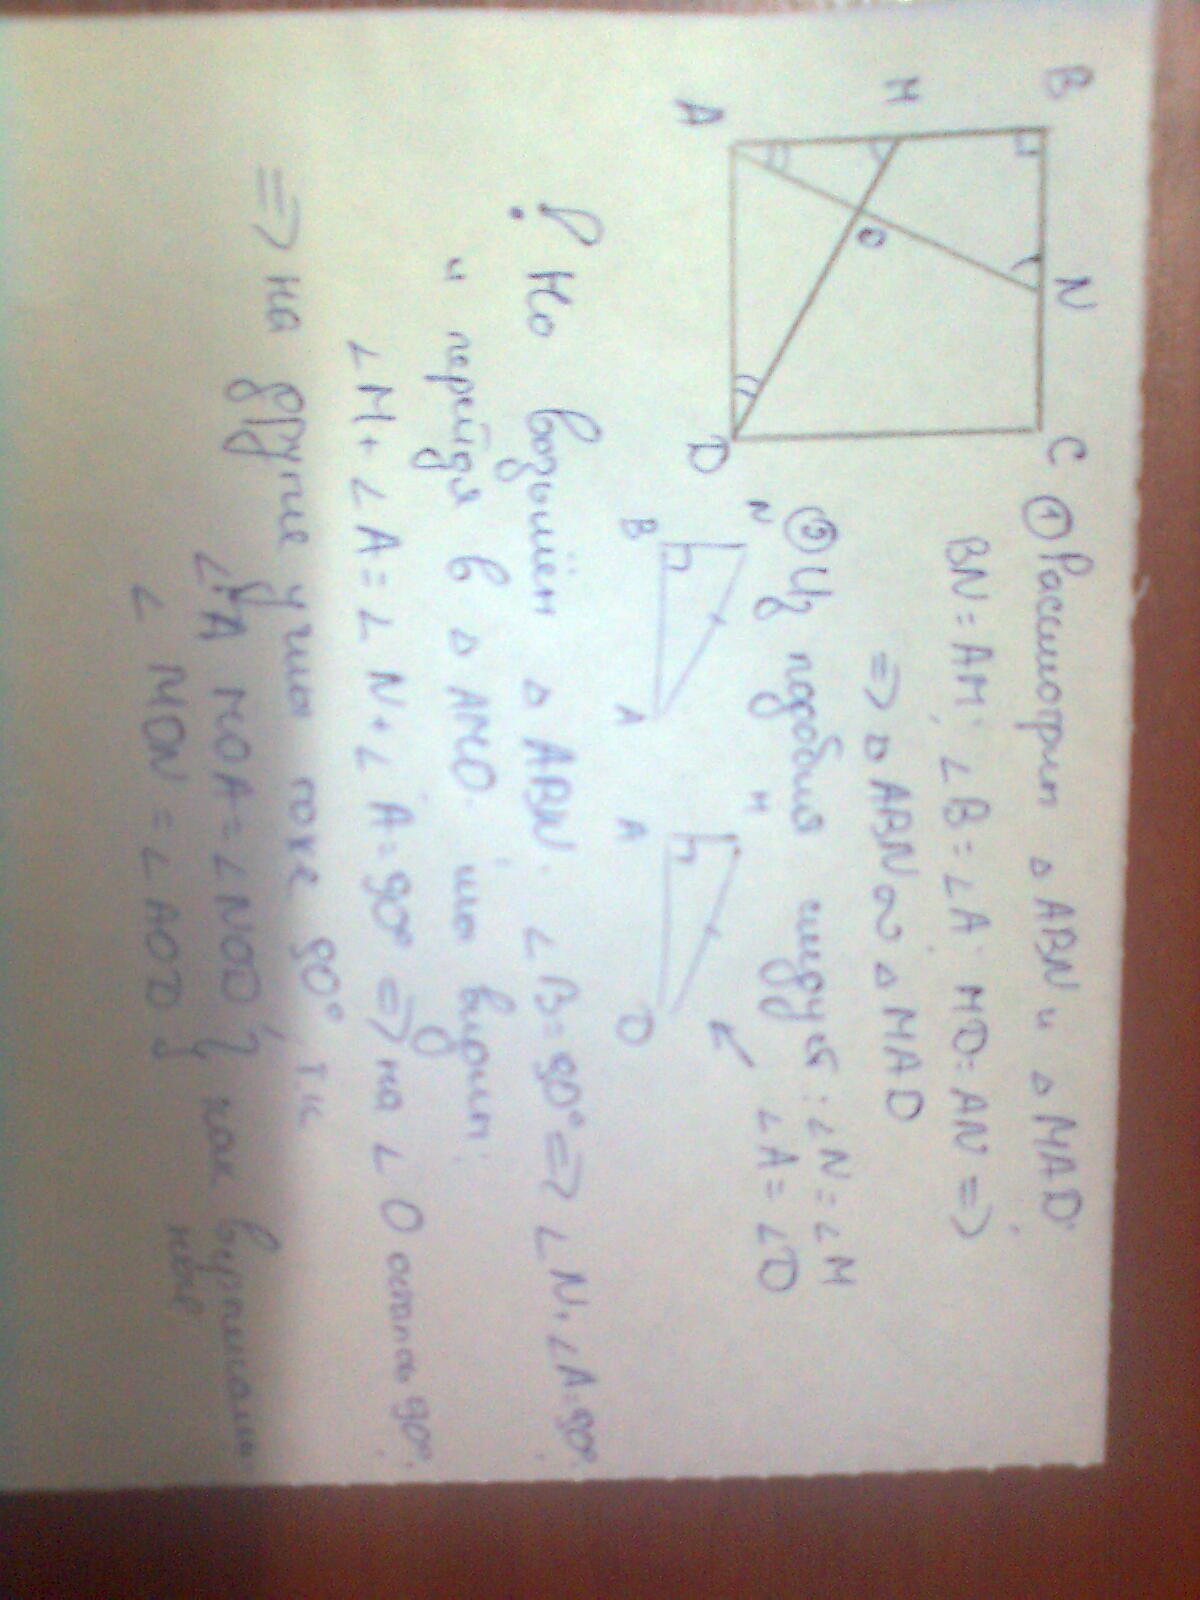 B N C
M
O
A D
① Рассмотрим ▵ ABN и ▵ MAD:
BN = AM; ∠B = ∠A; MD = AN =>
=> ▵ ABN ∾ ▵ MAD
② Из подобия следует: ∠N = ∠M
∠A = ∠D
N M
B A A D
! Но возьмём ▵ ABN. ∠B = 90° => ∠N, ∠A = 90°
и перейдя в ▵ AMO. мы видим:
∠M + ∠A = ∠N + ∠A = 90° => на ∠O осталось 90°.
=> на другие углы тоже 90°, т.к
MOA = ∠NOD } как вертикаль
∠ MON = ∠AOD } ные